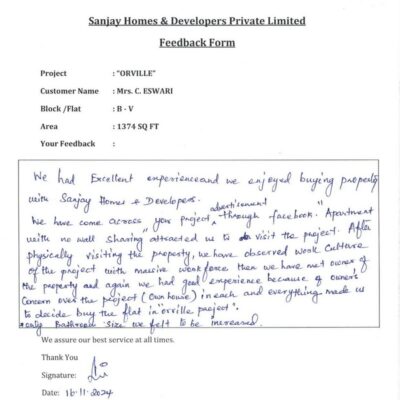 Sanjay Homes & Developers Private Limited
Feedback Form
Project : "ORVILLE"
Customer Name : Mrs. C. ESWARI
Block /Flat : B - V
Area : 1374 SQ FT
Your Feedback :
We had Excellent experience and we enjoyed buying property
with Sanjay Homes & Developers.
advertisement
We have come across your project through facebook. "Apartment
with no wall sharing" attracted us to visit the project. After
physically visiting the property, we have observed work culture
of the project with massive workforce then we have met owner of
the property and again we had good experience because of owner's
Concern over the project (Own house) in each and everything made us
to decide buy the flat in "orville project".
* only Bathroom Size we felt to be increased.
We assure our best service at all times.
Thank You
Signature:
Date: 16.11.2024